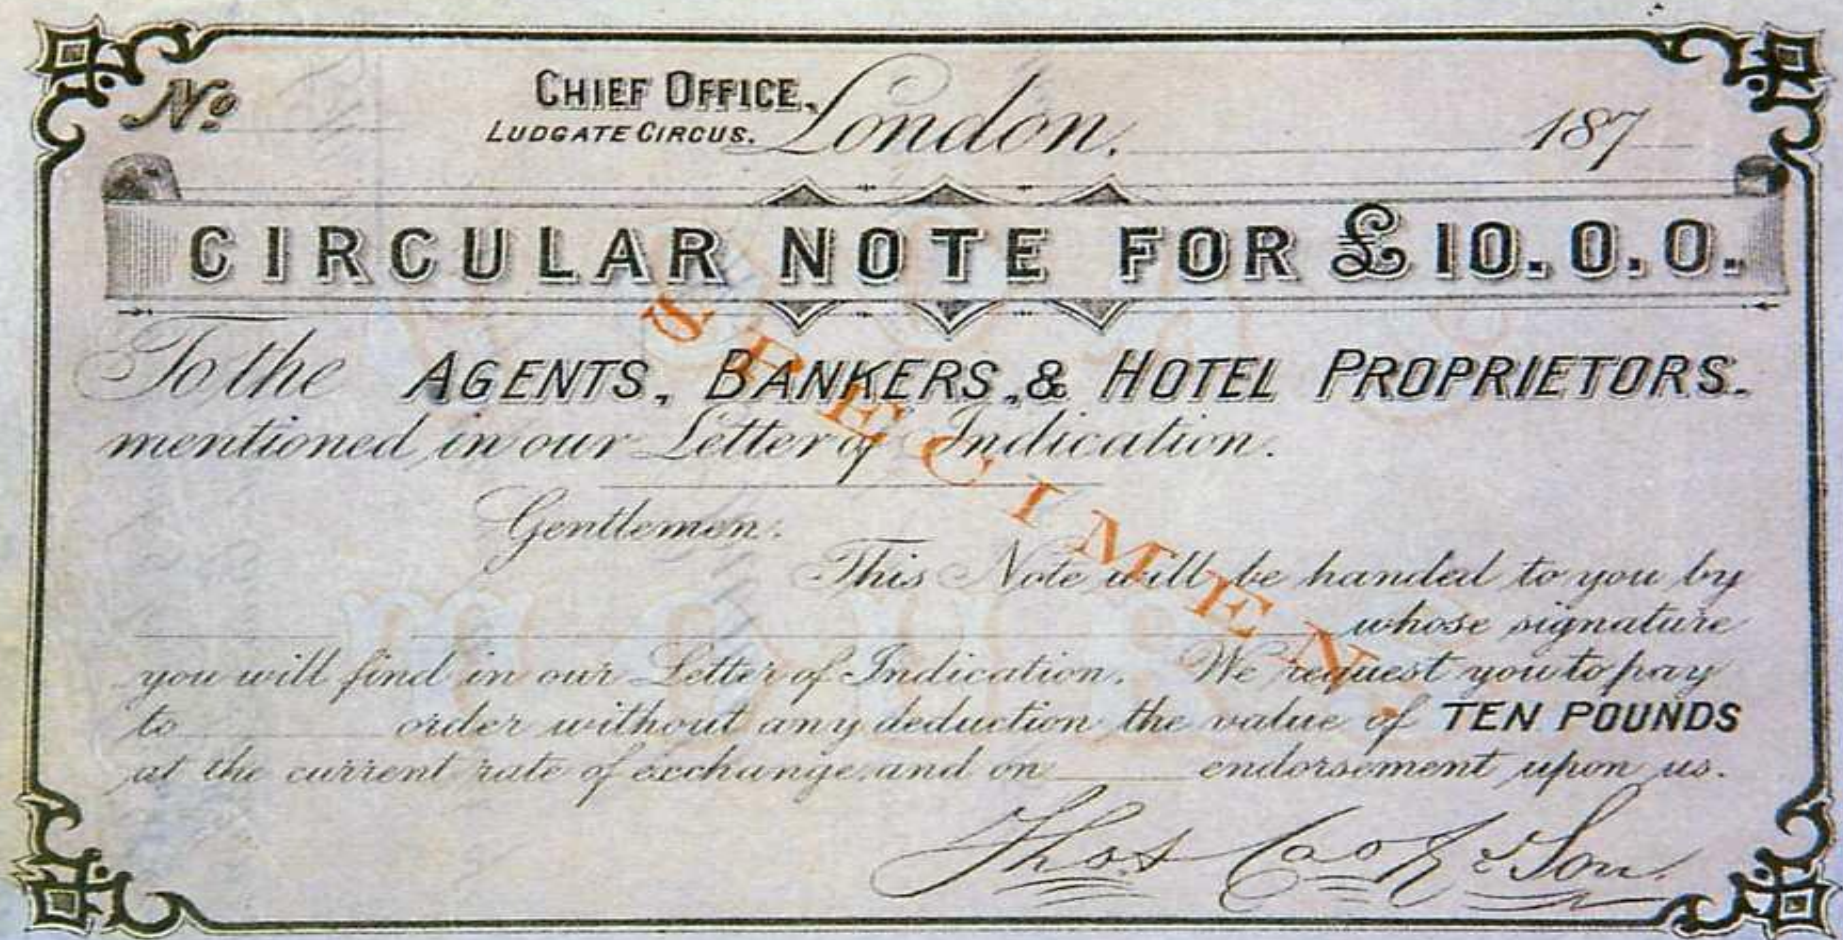 No CHIEF OFFICE, LUDGATE CIRCUS. London, 187
CIRCULAR NOTE FOR £10.0.0.
To the AGENTS, BANKERS, & HOTEL PROPRIETORS.
mentioned in our Letter of Indication.
SPECIMEN.
Gentlemen.
This Note will be handed to you by
whose signature
you will find in our Letter of Indication. We request you to pay
to order without any deduction the value of TEN POUNDS
at the current rate of exchange, and on endorsement upon us.
Thos Cook & Son.